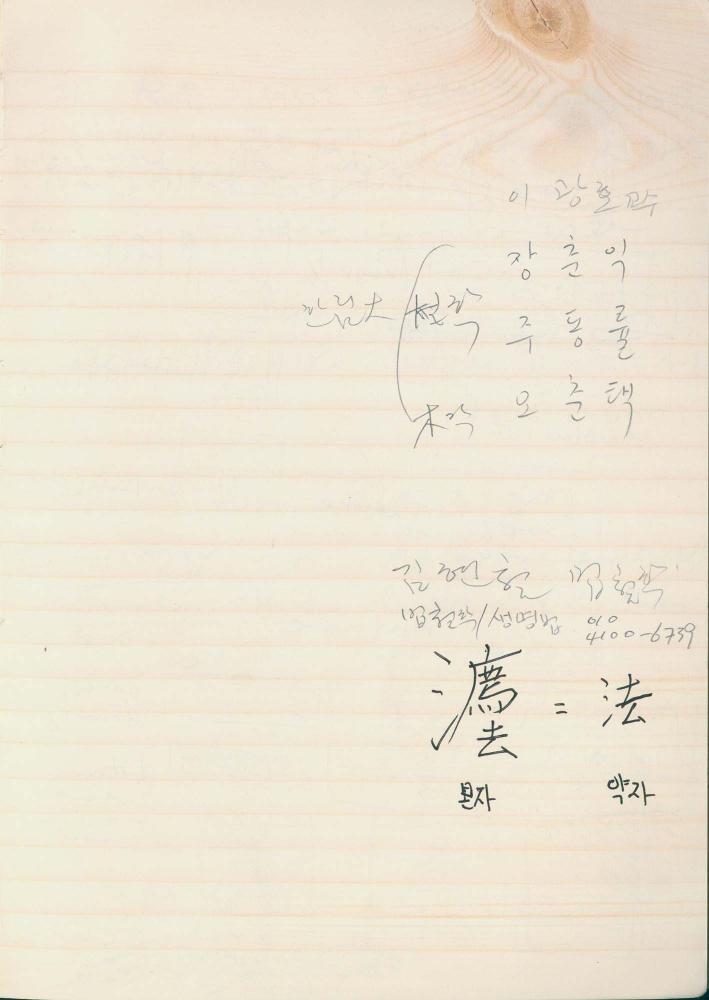 이 광호 교수
장 춘 익
한림大 철학 주 동 률
木각 오 춘 택
김현철 법철학
법철학/생명법 010
4100-6739
灋 = 法
본자 약자